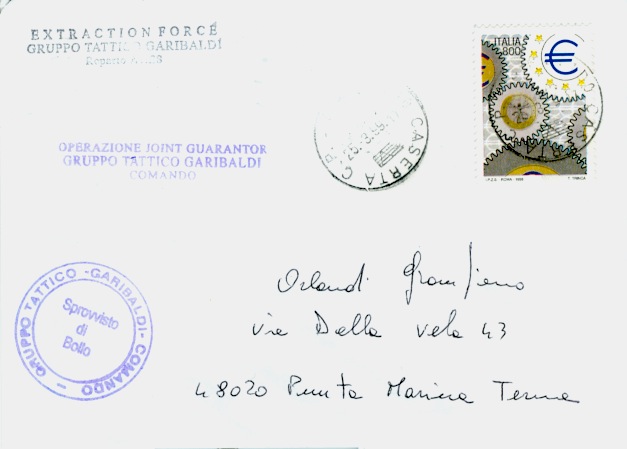 EXTRACTION FORCE
GRUPPO TATTICO GARIBALDI
Reparto
OPERAZIONE JOINT GUARANTOR
GRUPPO TATTICO GARIBALDI
COMANDO
CASERTA C.P.
ITALIA
800
€
I.P.Z.S. ROMA
GRUPPO TATTICO - GARIBALDI - COMANDO -
Sprovvisto
di
Bollo
Orlandi
via Dalla Vela 43
48020 Punta Marina Terme